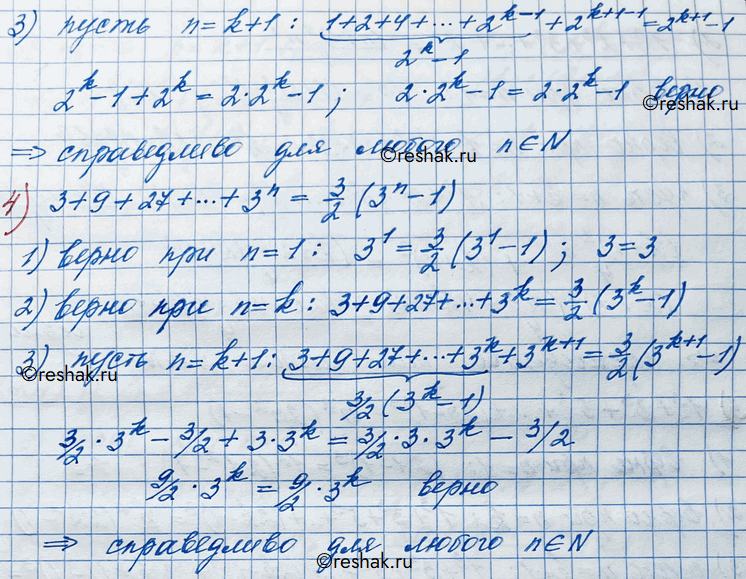 3) пусть n=k+1: 1+2+4+...+2^{k-1}+2^{k+1-1}=2^{k+1}-1
2^k-1
2^k-1+2^k=2·2^k-1; 2·2^k-1=2·2^k-1 верно
©reshak.ru
⇒ справедливо для любого n∈N
©reshak.ru
4) 3+9+27+...+3^n=3/2(3^n-1)
1) верно при n=1: 3^1=3/2(3^1-1); 3=3
2) верно при n=k: 3+9+27+...+3^k=3/2(3^k-1)
3) пусть n=k+1: 3+9+27+...+3^k+3^{k+1}=3/2(3^{k+1}-1)
©reshak.ru
3/2(3^k-1)
3/2·3^k-3/2+3·3^k=3/2·3·3^k-3/2
9/2·3^k=9/2·3^k верно
⇒ справедливо для любого n∈N
©reshak.ru